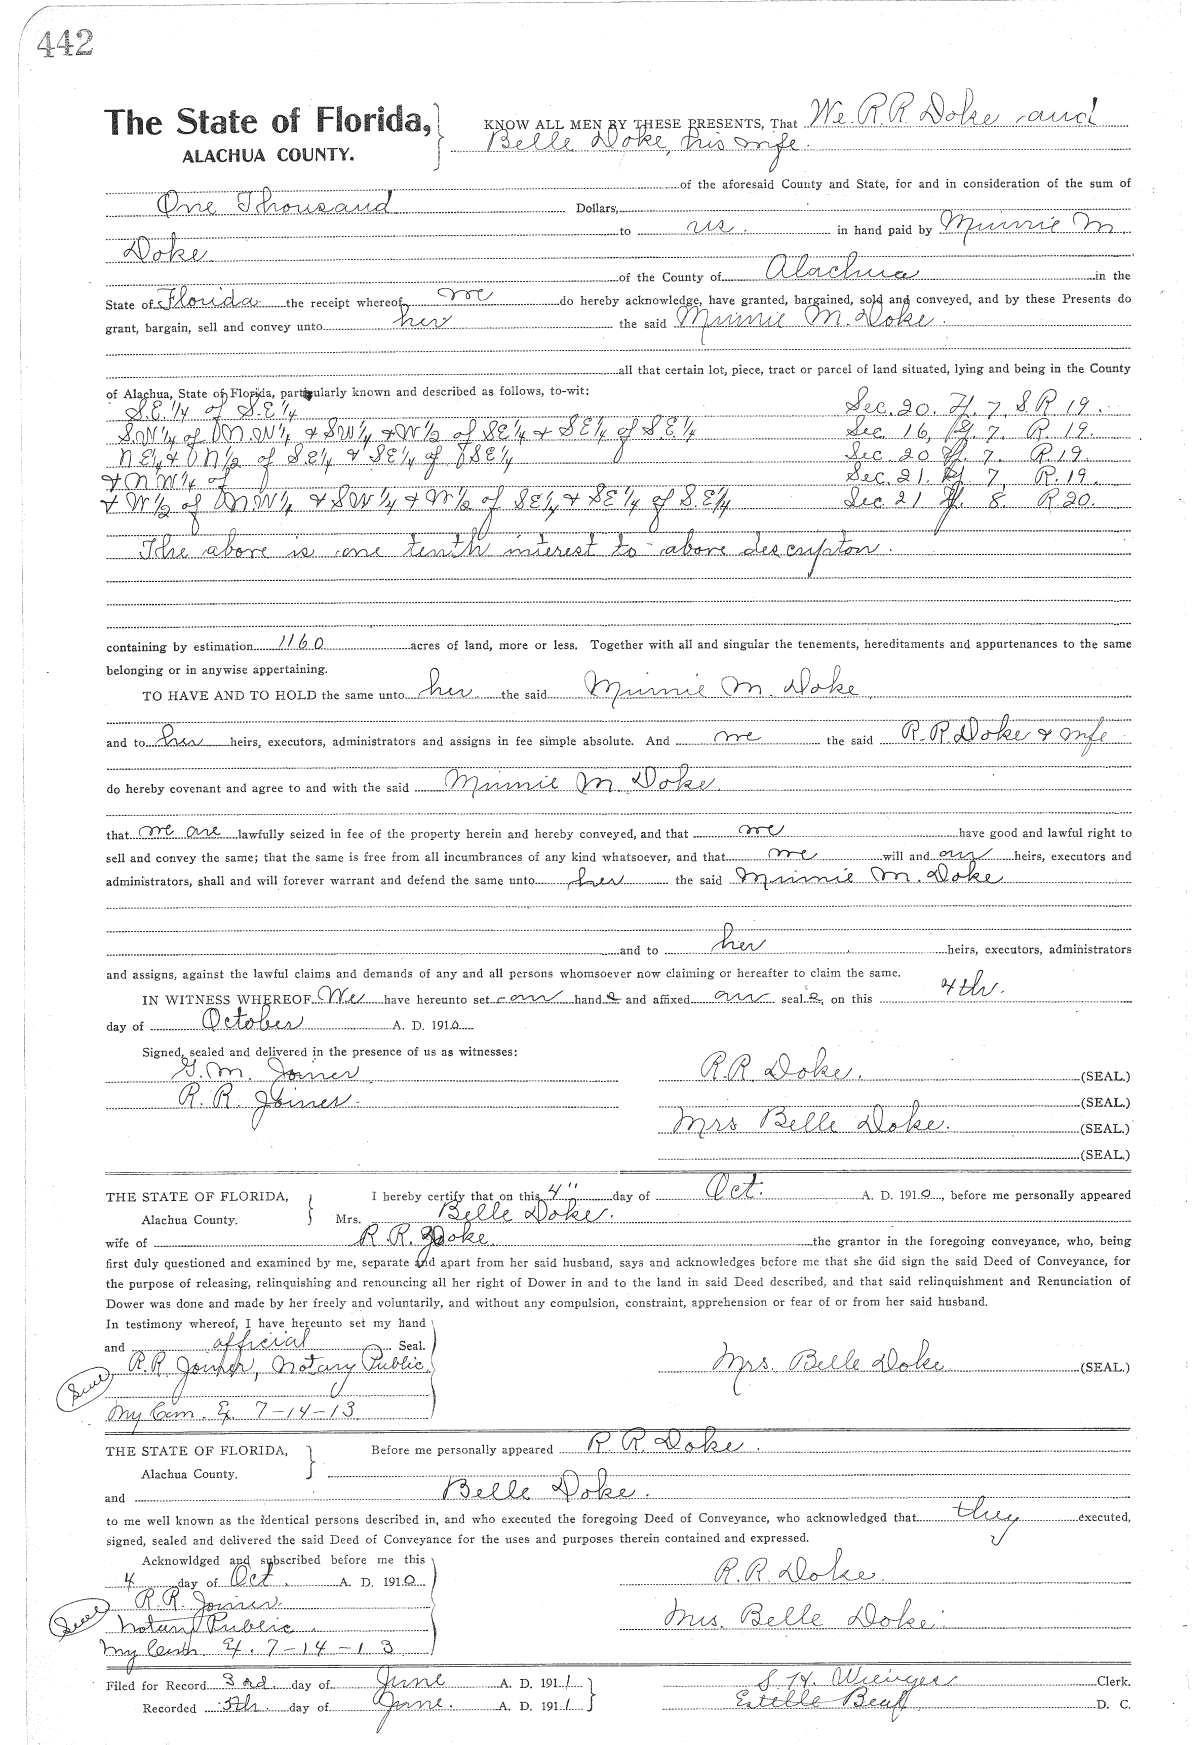 442
The State of Florida, KNOW ALL MEN BY THESE PRESENTS, That We R.R. Doke and
ALACHUA COUNTY. Belle Doke, his wife.
of the aforesaid County and State, for and in consideration of the sum of
One Thousand Dollars,
to us. in hand paid by Minnie M.
Doke
of the County of Alachua in the
State of Florida the receipt whereof we do hereby acknowledge, have granted, bargained, sold and conveyed, and by these Presents do
grant, bargain, sell and convey unto her the said Minnie M. Doke.
all that certain lot, piece, tract or parcel of land situated, lying and being in the County
of Alachua, State of Florida, particularly known and described as follows, to-wit:
S.E. 1/4 of S.E 1/4 Sec. 20. 7. S. R 19.
S.W 1/4 of N.W 1/4 & SW 1/4 & W 1/2 of SE 1/4 & SE 1/4 of S.E 1/4 Sec 16, 7. R. 19.
N E 1/4 & N 1/2 of S.E 1/4 & SE 1/4 of SE 1/4 Sec 20 7. R 19
& N.W 1/4 of Sec. 21. 7, R. 19.
& W 1/2 of N.W 1/4 & SW 1/4 & W 1/2 of SE 1/4 & SE 1/4 of S.E 1/4 Sec 21 8. R 20.
The above is one tenth interest to above descripton.
containing by estimation 1160 acres of land, more or less. Together with all and singular the tenements, hereditaments and appurtenances to the same
belonging or in anywise appertaining.
TO HAVE AND TO HOLD the same unto her the said Minnie M. Doke
and to her heirs, executors, administrators and assigns in fee simple absolute. And we the said R.R. Doke & wife
do hereby covenant and agree to and with the said Minnie M Doke
that we are lawfully seized in fee of the property herein and hereby conveyed, and that we have good and lawful right to
sell and convey the same; that the same is free from all incumbrances of any kind whatsoever, and that we will and our heirs, executors and
administrators, shall and will forever warrant and defend the same unto her the said Minnie M. Doke
and to her heirs, executors, administrators
and assigns, against the lawful claims and demands of any and all persons whomsoever now claiming or hereafter to claim the same.
IN WITNESS WHEREOF We have hereunto set our hands and affixed our seals, on this 4th.
day of October A. D. 1910
Signed, sealed and delivered in the presence of us as witnesses:
G. M. Joiner R.R. Doke. (SEAL.)
R. R. Joiner. (SEAL.)
Mrs Belle Doke. (SEAL.)
(SEAL.)
THE STATE OF FLORIDA, I hereby certify that on this 4" day of Oct. A. D. 1910, before me personally appeared
Alachua County. Mrs. Belle Doke.
wife of R R. Doke the grantor in the foregoing conveyance, who, being
first duly questioned and examined by me, separate and apart from her said husband, says and acknowledges before me that she did sign the said Deed of Conveyance, for
the purpose of releasing, relinquishing and renouncing all her right of Dower in and to the land in said Deed described, and that said relinquishment and Renunciation of
Dower was done and made by her freely and voluntarily, and without any compulsion, constraint, apprehension or fear of or from her said husband.
In testimony whereof, I have hereunto set my hand
and official Seal.
R.R. Joiner, Notary Public. Mrs. Belle Doke (SEAL.)
Seal
My Com. Ex. 7-14-13
THE STATE OF FLORIDA, Before me personally appeared R. R. Doke.
Alachua County.
and Belle Doke.
to me well known as the identical persons described in, and who executed the foregoing Deed of Conveyance, who acknowledged that they executed,
signed, sealed and delivered the said Deed of Conveyance for the uses and purposes therein contained and expressed.
Acknowldged and subscribed before me this
4 day of Oct. A. D. 1910 R.R. Doke.
R. R. Joiner
Seal Notary Public. Mrs. Belle Doke.
My Com Ex. 7-14-13
Filed for Record 3rd day of June A. D. 1911 S. H. Wienges Clerk.
Recorded 5th day of June. A. D. 1911 Estelle D. C.